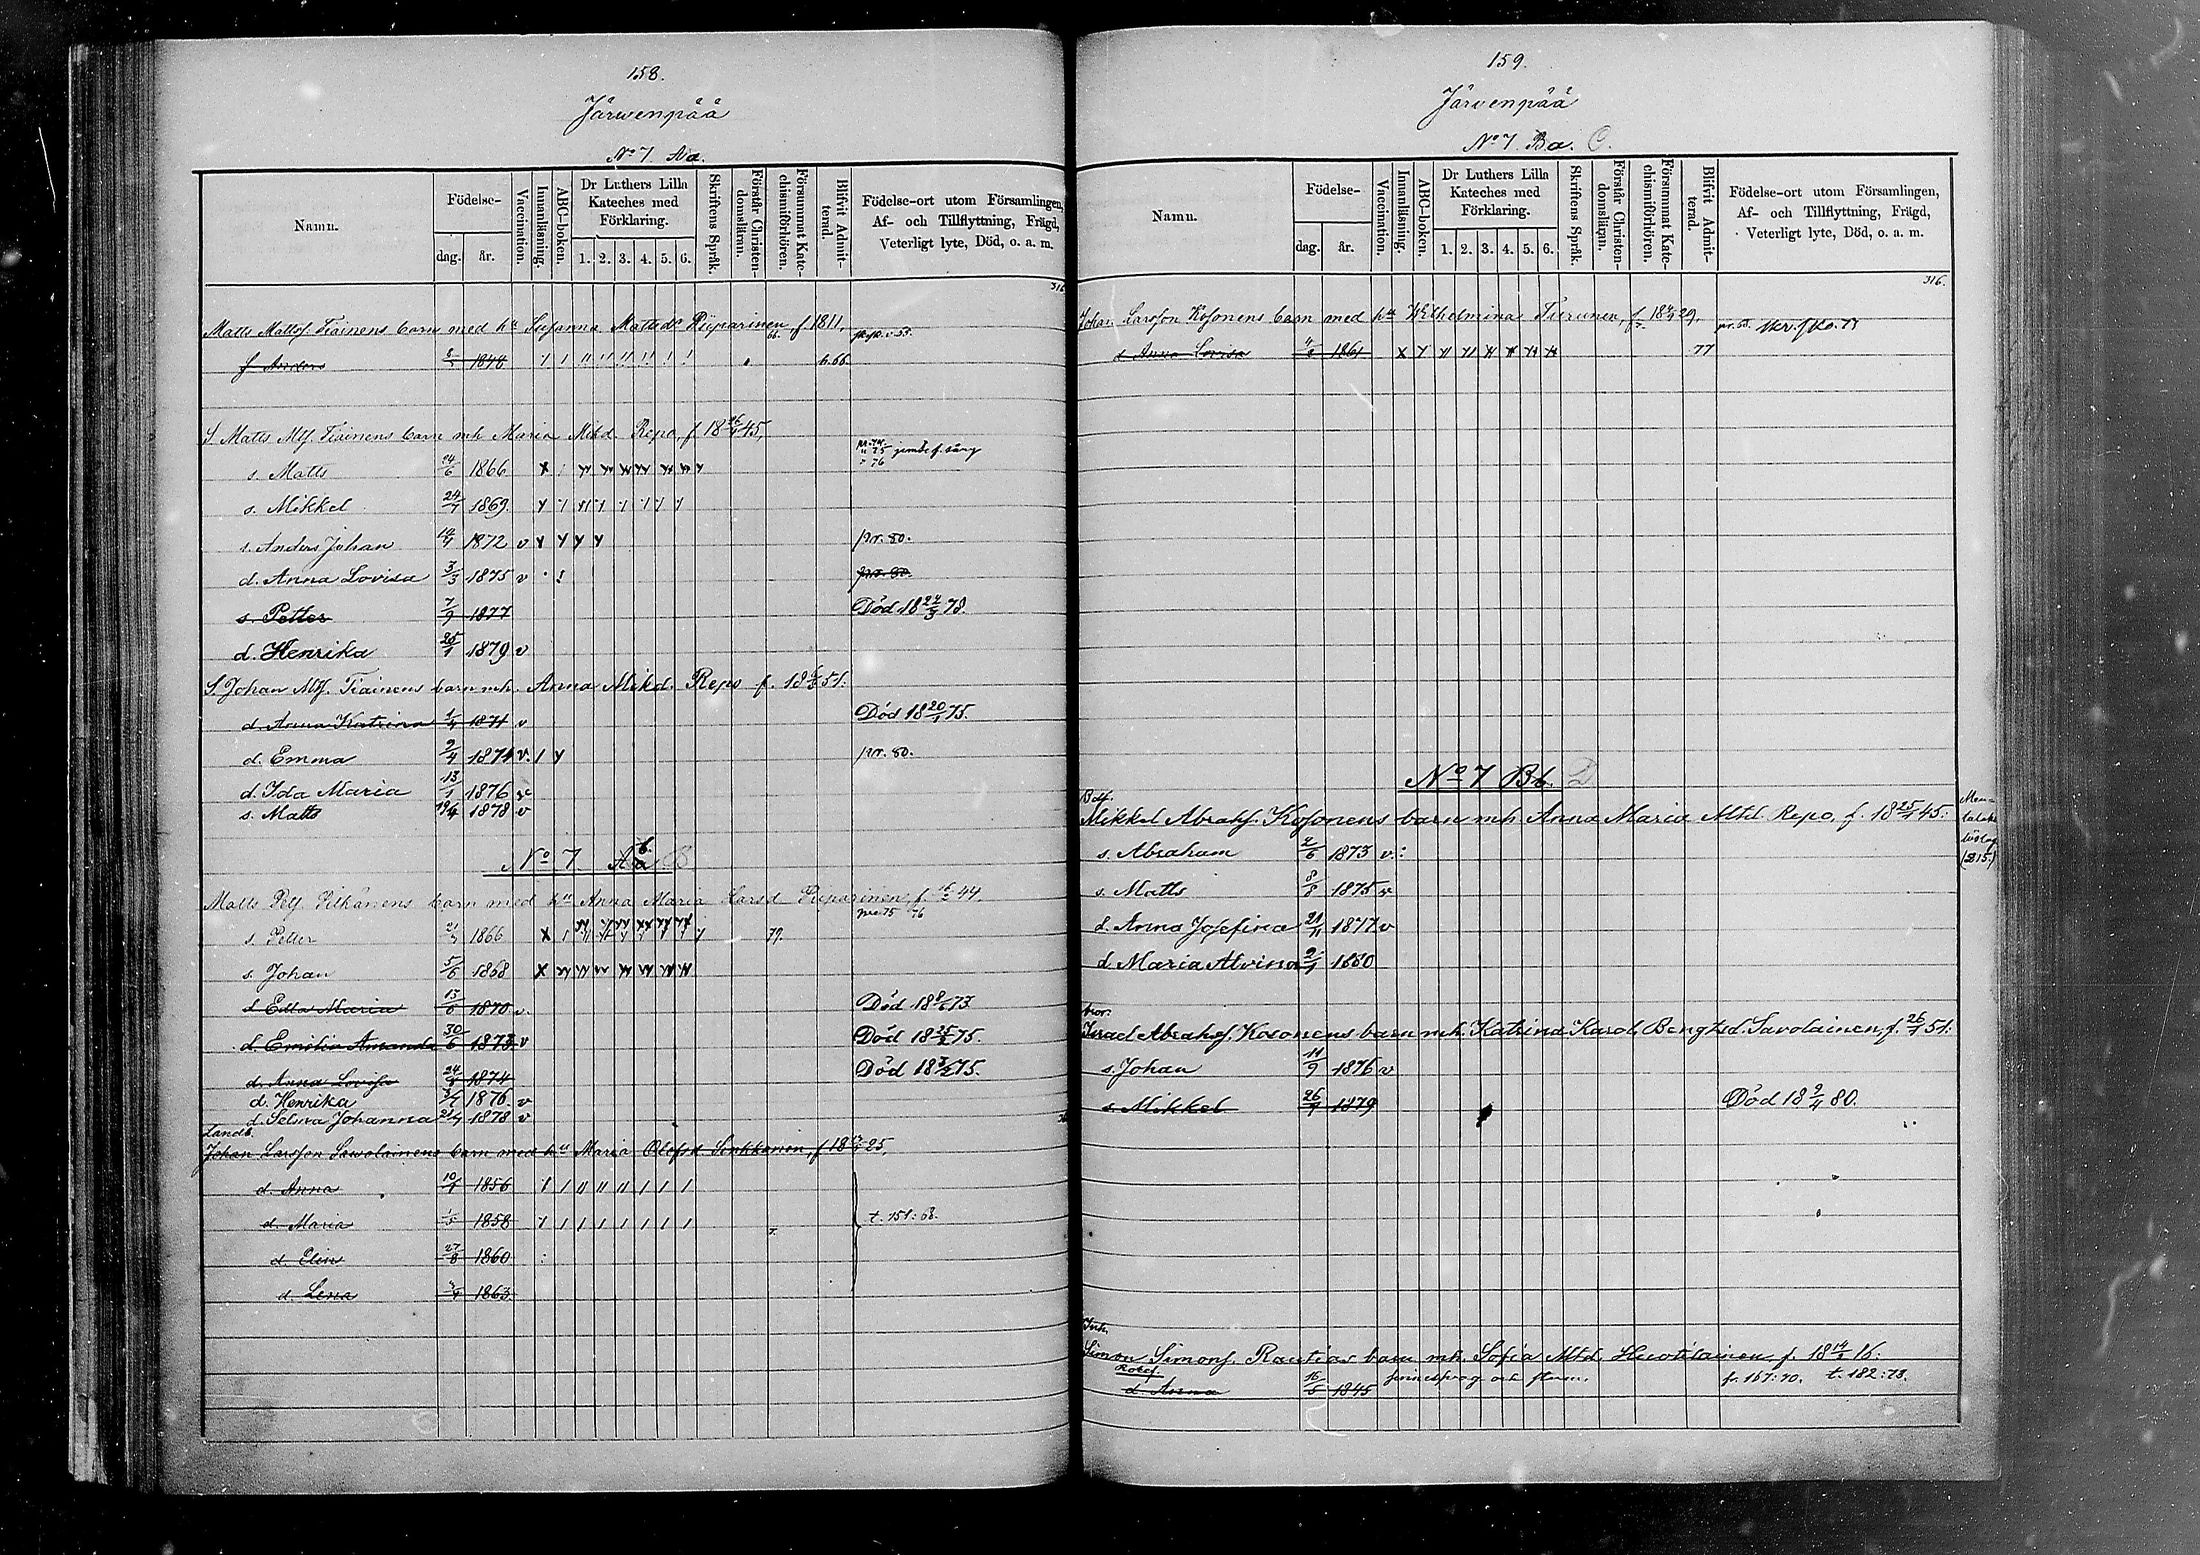 158.
Järwenpää
No 7. Aa.
Namn.
Födelse-
dag. år.
Vaccination.
Innanläsning.
ABC-boken.
Dr Luthers Lilla Kateches med Förklaring.
1. 2. 3. 4. 5. 6.
Skriftens Språk.
Förstår Christendomsläran.
Försummat Katechismiförhören.
Blifvit Admitterad.
Födelse-ort utom Församlingen,
Af- och Tillflyttning, Frägd,
Veterligt lyte, Död, o. a. m.
316
Matts Mattss. Tiainens barn med hu Susanna Mattsdr Piiparinen, f 1811.
f Anders 1848 b. 66
S. Matts Mtss. Tiainens barn mh Maria Mikd. Repo, f 18 26/4 45,
s. Matts 24/6 1866
s. Mikkel 24/7 1869
s. Anders Johan 1872 v pr. 80.
d. Anna Lovisa 3/3 1875 v pr. 80.
s. Petter 7/9 1877 Död 18 24/3 78.
d. Henrika 25/1 1879 v
S. Johan Mtss. Tiainens barn mh. Anna Mikd. Repo f. 18 51.
d. Anna Katrina 1/4 1871 v Död 18 20/1 75.
d. Emma 9/4 1874 v. pr. 80.
d. Ida Maria 13/1 1876 v
s. Matts 19/4 1878 v
No 7 Ab. B
Matts Pett. Pitkänens barn med hu Anna Maria Larsd Piiparinen, f. 16/2 44.
s. Petter 1866 79.
s. Johan 5/6 1868
d Edla Maria 13/6 1870 v. Död 18 73
d. Emilia Amanda 30/6 1873 v Död 18 75.
d. Anna Lovisa 1874 Död 18 75.
d. Henrika 1876 v
d. Selma Johanna 1878 v
Landb.
Johan Larsson Sawolainens barn med hu Maria Olofsd. Sinkkonen, f 18 25.
d. Anna 10/4 1856
d. Maria 1/5 1858 t. 151: 68.
d. Elin 27/8 1860
d. Lena 1863
159.
Järvenpää
No 7. Ba. C.
Namn.
Födelse-
dag. år.
Vaccination.
Innanläsning.
ABC-boken.
Dr Luthers Lilla Kateches med Förklaring.
1. 2. 3. 4. 5. 6.
Skriftens Språk.
Förstår Christendomsläran.
Försummat Katechismiförhören.
Blifvit Admitterad.
Födelse-ort utom Församlingen,
Af- och Tillflyttning, Frägd,
Veterligt lyte, Död, o. a. m.
316.
Johan Larsson Kosonens barn med hu Wilhelmina Turunen, f. 18 29.
d Anna Lovisa 1861 77
No 7 Bb. D
Mikkel Abrahs. Kosonens barn mh Anna Maria Mtd. Repo, f. 18 25/4 45.
s. Abraham 2/6 1873 v.
s. Matts 8/8 1875 v
d. Anna Josefina 21/11 1877 v
d Maria Alvina 2/1 1880
bror:
Israel Abrahs. Kosonens barn mh. Katrina Karol. Bengtsd. Savolainen, f. 26/1 51.
s. Johan 11/9 1876 v
s. Mikkel 26/9 1879 Död 18 9/4 80.
Inh.
Simon Simons. Rautias barn mh. Sofia Mtd. Huotilainen, f. 18 14/2 16.
d Anna 16/5 1845 fr. 167: 70. t. 182: 78.